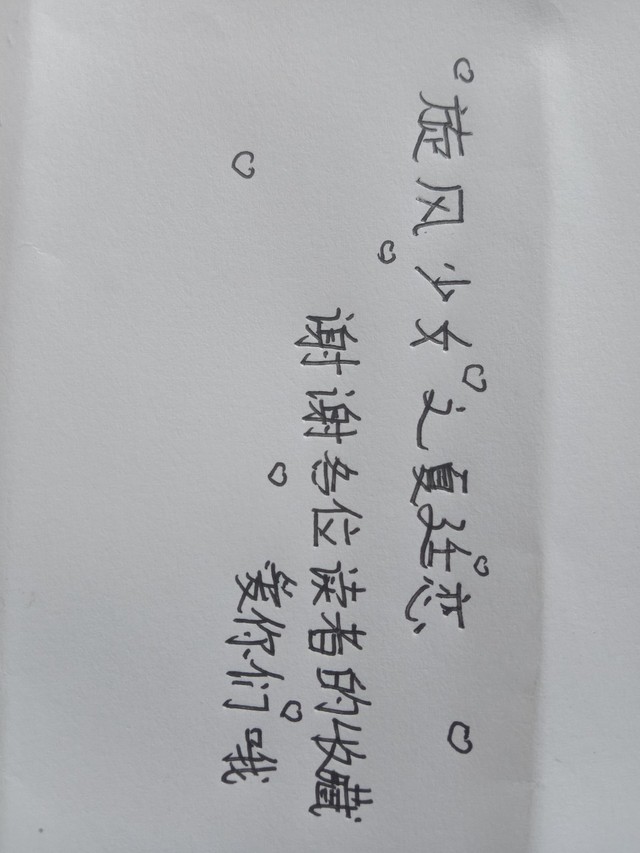 旋风少女之夏廷恋
谢谢各位读者的收藏
爱你们哦